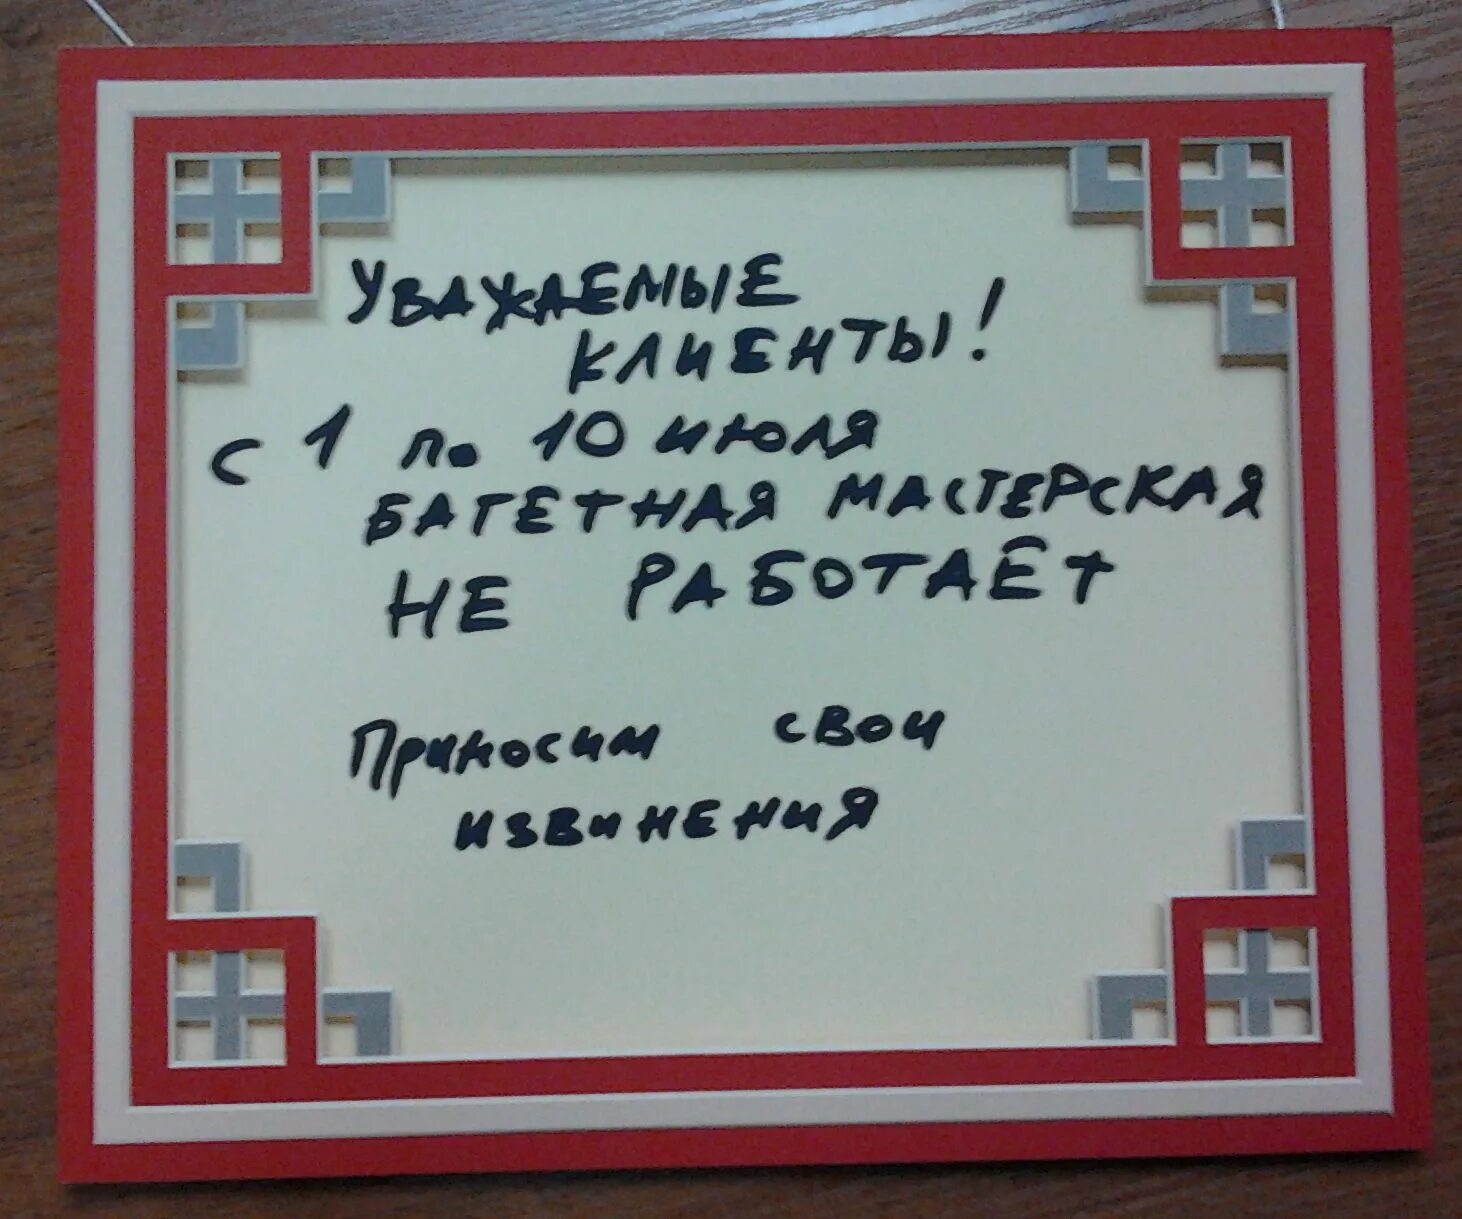 Уважаемые
клиенты!
с 1 по 10 июля
багетная мастерская
НЕ РАБОТАЕТ
Приносим свои
извинения